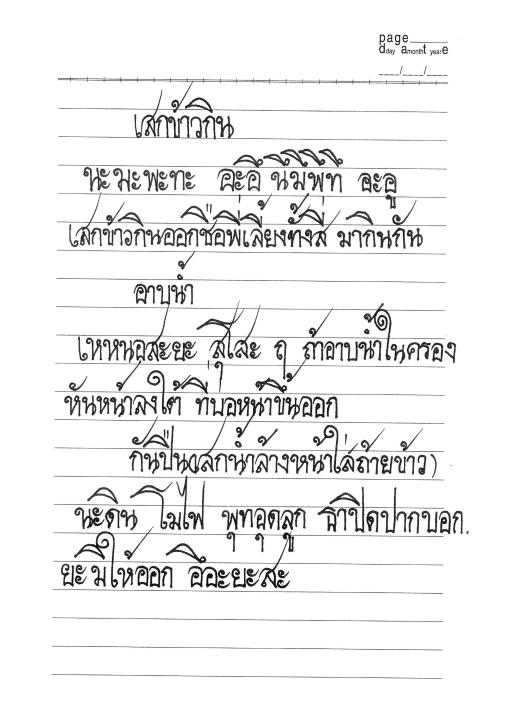 page
dday amonth year
__/__/__
เสกข้าวกิน
นะมะพะทะ อะอึ นึมึพึทึ อะอู
เสกข้าวกินออกชื่อพี่เลี้ยงทั้งสี่ มากินกัน
อาบน้ำ
เหหนอสะยะ สุโสะ ฤ ถ้าอาบน้ำในครอง
หันหน้าลงใต้ ที่บ่อหน้าขึ้นออก
กันปืน(เสกน้ำล้างหน้าใส่ถ้ายข้าว)
นะดิน โมไฟ พุทอุดลูก ธาปิดปากบอก.
ยะมิให้ออก อืออะยะสะ